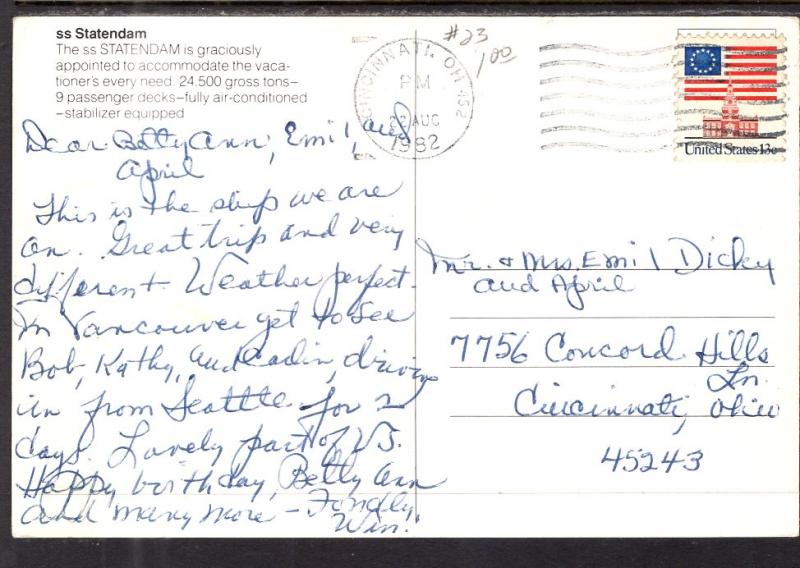 ss Statendam
The ss STATENDAM is graciously
appointed to accommodate the vaca-
tioner's every need. 24,500 gross tons–
9 passenger decks–fully air-conditioned
–stabilizer equipped
#23
1.00
CINCINNATI, OH 452
PM
22 AUG
1982
United States 13c
Dear Betty Ann, Emil, and
April
This is the ship we are
on. Great trip and very
different. Weather perfect.
In Vancouver get to see
Bob, Kathy, and driving
in from Seattle for 2
days. Lovely part of US.
Happy birthday, Betty Ann
and many more – Fondly,
Win.
Mr. & Mrs. Emil Dicky
and April
7756 Concord Hills
Ln.
Cincinnati, Ohio
45243